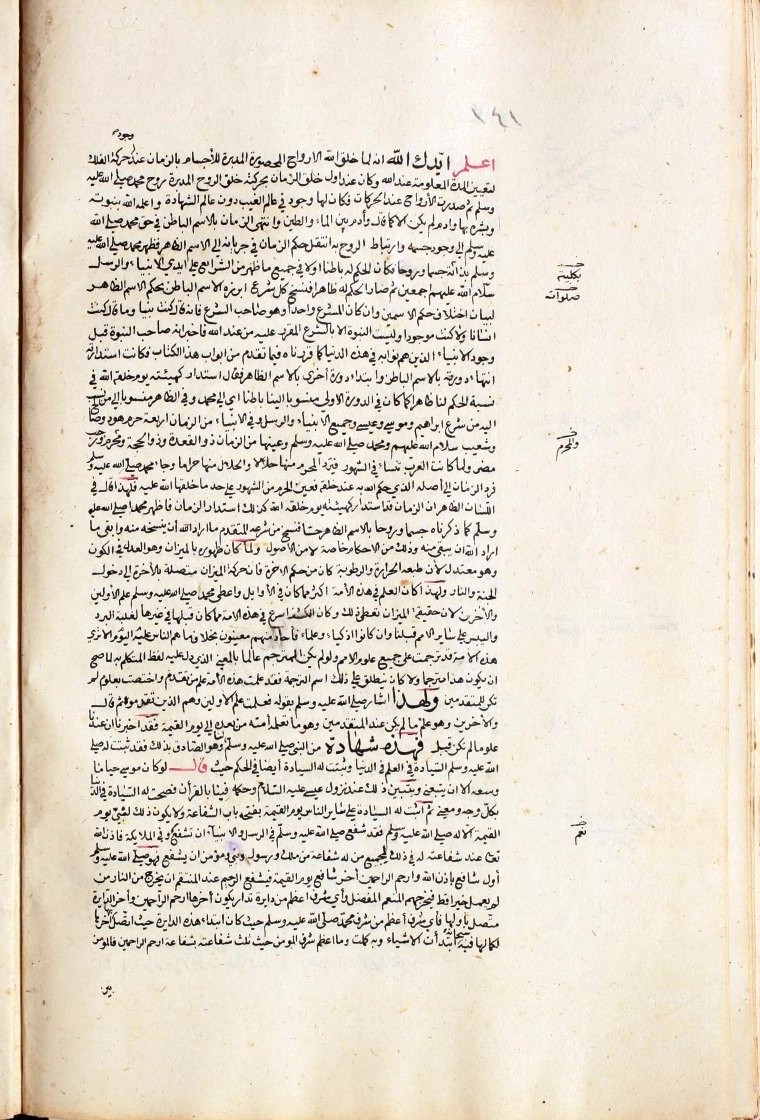 ٢٤١
وجود
اعلم ايدك الله انه لما خلق الله الارواح المحصورة المدبرة للأجسام بالزمان عند حركة الفلك
لتعيين المدة المعلومة عند الله وكان عند اول خلق الزمان بحركته خلق الروح المدبرة روح محمد صلى الله عليه
وسلم ثم صدرت الأرواح عند الحركات فكان لها وجود في عالم الغيب دون عالم الشهادة واعلمه الله بنبوته
وبشره بها وادم لم يكن الا كما قال وادم بين الماء والطين وانتهى الزمان بالاسم الباطن في حق محمد صلى الله
عليه وسلم الى وجود جسمه وارتباط الروح به انتقل حكم الزمان في جريانه الى الاسم الظاهر فظهر محمد صلى الله عليه
وسلم بذاته جسما وروحا فكان الحكم له باطنا اولا في جميع ما ظهر من الشرايع على ايدي الانبياء والرسل
سلام الله عليهم اجمعين ثم صار الحكم له ظاهرا فنسخ كل شرع ابرزه الاسم الباطن بحكم الاسم الظاهر
لبيان اختلاف حكم الاسمين وان كان المشرع واحدا وهو صاحب الشرع فانه قال كنت نبيا وما قال كنت
انسانا ولا كنت موجودا وليست النبوة الا بالشرع المقرر عليه من عند الله فاخبر انه صاحب النبوة قبل
وجود الانبياء الذين هم نوابه في هذه الدنيا كما قررناه فيما تقدم من ابواب هذا الكتاب فكانت استدارته
انتهاء دورته بالاسم الباطن وابتداء دورة اخرى بالاسم الظاهر فقال استدار كهيئته يوم خلقه الله في
نسبة الحكم لنا ظاهرا كما كان في الدورة الاولى منسوبا الينا باطنا اي الى محمد وفي الظاهر منسوبا الى من نسب
اليه من شرع ابراهيم وموسى وعيسى وجميع الانبياء والرسل وفي الانبياء من الزمان اربعة حرم هود وصالح
وشعيب سلام الله عليهم ومحمد صلى الله عليه وسلم وعينها من الزمان ذو القعدة وذو الحجة ومحرم ورجب
مضر ولما كانت العرب تنسأ في الشهور فترد المحرم منها حلالا والحلال منها حراما وجا محمد صلى الله عليه وسلم
فرد الزمان الى أصله الذي حكم الله به عند خلقه فعين الحرم من الشهور على حد ما خلقها الله عليه فلهذا قال في
اللسان الظاهر ان الزمان قد استدار كهيئته يوم خلقه الله كذلك استدار الزمان فاظهر محمدا صلى الله عليه
وسلم كما ذكرناه جسما وروحا بالاسم الظاهر حسا فنسخ من شرعه المتقدم ما اراد الله أن ينسخه منه وابقى ما
اراد الله ان يبقى منه وذلك من الاحكام خاصة لا من الاصول ولما كان ظهوره بالميزان وهو العدل في الكون
وهو معتدل لأن طبعه الحرارة والرطوبة كان من حكم الاخرة فان حركة الميزان متصلة بالآخرة الى دخول
الجنة والنار ولهذا كان العلم في هذه الأمة اكثر مما كان في الأوايل واعطى محمد صلى الله عليه وسلم علم الأولين
والآخرين لان حقيقة الميزان تعطى ذلك وكان الكشف اسرع في هذه الامة مما كان قبلها في غيرها لغلبة البرد
واليبس على ساير الامم قبلنا وان كانوا اذكياء وعلماء فآحاد منهم معينون بخلاف ما هم الناس عليه اليوم الا ترى
هذه الامة قد ترجمت على جميع علوم الامم ولو لم يكن المترجم عالما بالمعنى الذي دل عليه لفظ المتكلم به لما صح
ان يكون هذا مترجما ولا كان ينطلق على ذلك اسم الترجمة فقد علمت هذه الأمة علم من تقدم واختصت بعلوم لم
تكن للمتقدمين ولهذا اشار صلى الله عليه وسلم بقوله فعلمت علم الاولين وهم الذين تقدموه ثم قال
والآخرين وهو علم ما لم يكن عند المتقدمين وهو ما تعلمه أمته من بعده الى يوم القيمة فقد اخبرنا ان عندنا
علوما لم تكن قبل فهذه شهادة من النبي صلى الله عليه وسلم وهو الصادق بذلك فقد ثبتت له صلى
الله عليه وسلم السيادة في العلم في الدنيا وثبتت له السيادة أيضا في الحكم حيث قال لو كان موسى حيا ما
وسعه الا ان يتبعني ويتبين ذلك عند نزول عيسى عليه السلام وحكمه فينا بالقرآن فصحت له السيادة في الدنيا
بكل وجه ومعنى ثم أثبت له السيادة على ساير الناس يوم القيمة بفتحه باب الشفاعة ولا يكون ذلك لنبي يوم
القيمة الا له صلى الله عليه وسلم فقد شفع صلى الله عليه وسلم في الرسل والانبياء ان تشفع وفي الملايكة فاذن الله
تعالى عند شفاعته له في ذلك لجميع من له شفاعة من ملك ورسول ونبي ومؤمن ان يشفع فهو صلى الله عليه وسلم
أول شافع باذن الله وارحم الراحمين آخر شافع يوم القيمة فيشفع الرحيم عند المنتقم ان يخرج من النار من
لم يعمل خيرا قط فيخرجهم المنعم المفضل وأي شرف اعظم من دايرة تدار يكون آخرها ارحم الراحمين وآخر الدايرة
متصل باولها فأي شرف أعظم من شرف محمد صلى الله عليه وسلم حيث كان ابتداء هذه الدايرة حيث اتصل آخرها
لكمالها فبه سبحانه ابتدأت الاشياء وبه كملت وما اعظم شرف المومن حيث تلت شفاعته بشفاعة ارحم الراحمين فالمومن
بكليته
صلوات
والمحرم
نعم
بين